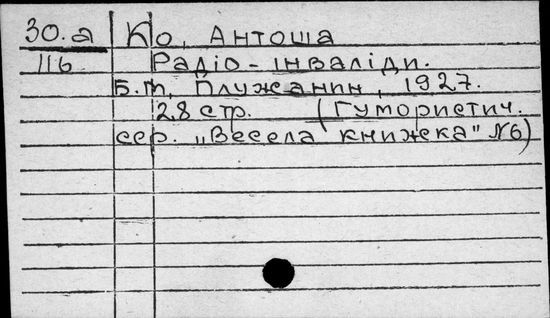 30.а Ко, Антоша
116 Радіо-інваліди.
Б.м, Плужанин, 1927.
28 стр. (Гумористич.
сер. „Весела книжека" №6)